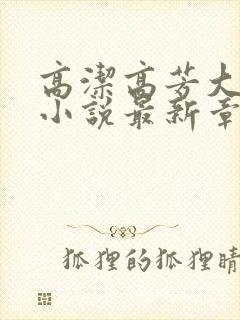 高潔高芳大
小說最新章
狐狸的狐狸晴